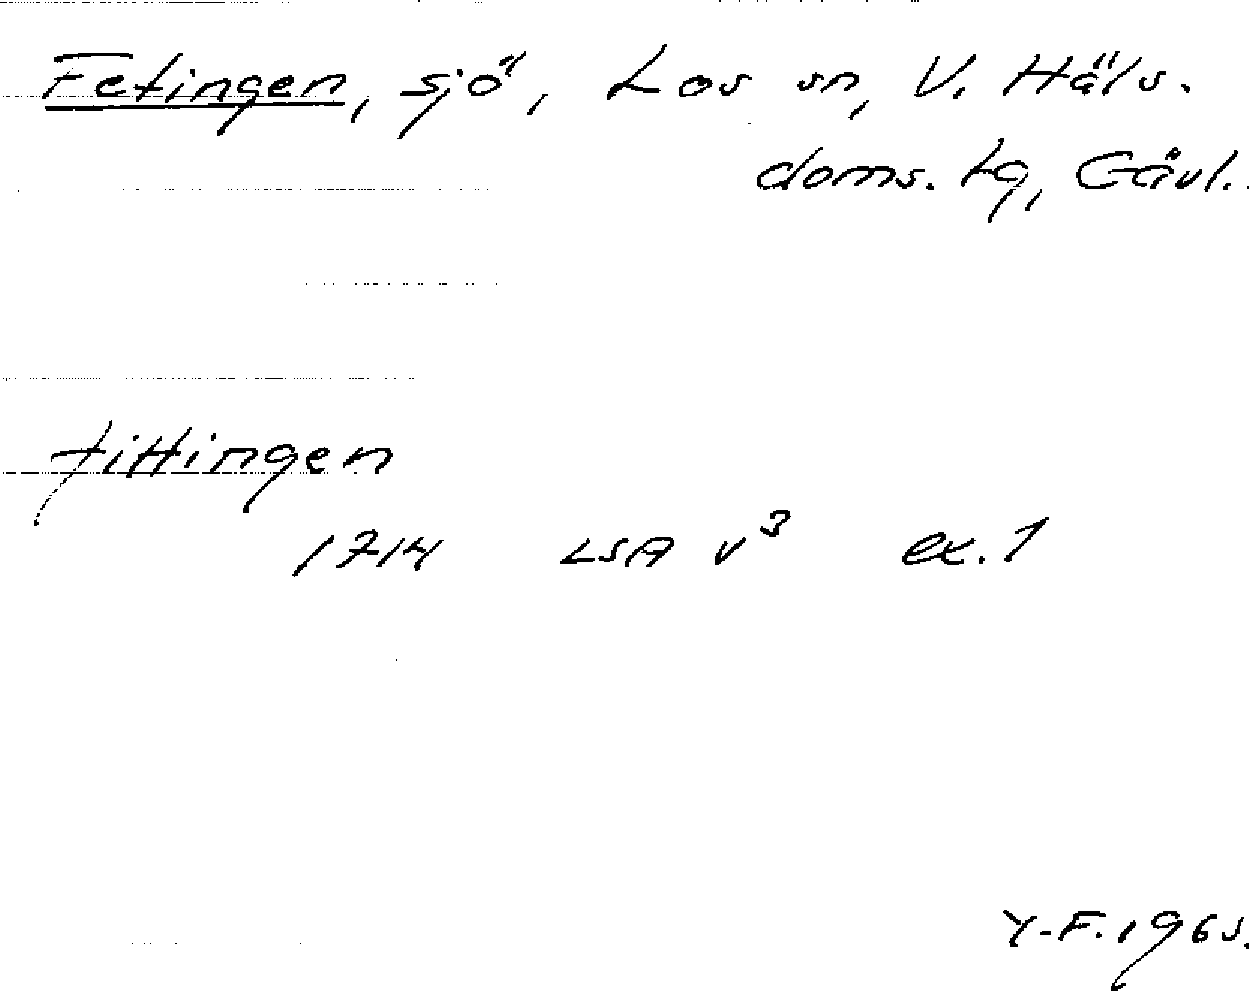 Fetingen, sjö, Los sn, V. Häls.
doms. tg, Gävl.
fittingen
1714 LSA v³ ex. 1
Y-F. 1965.